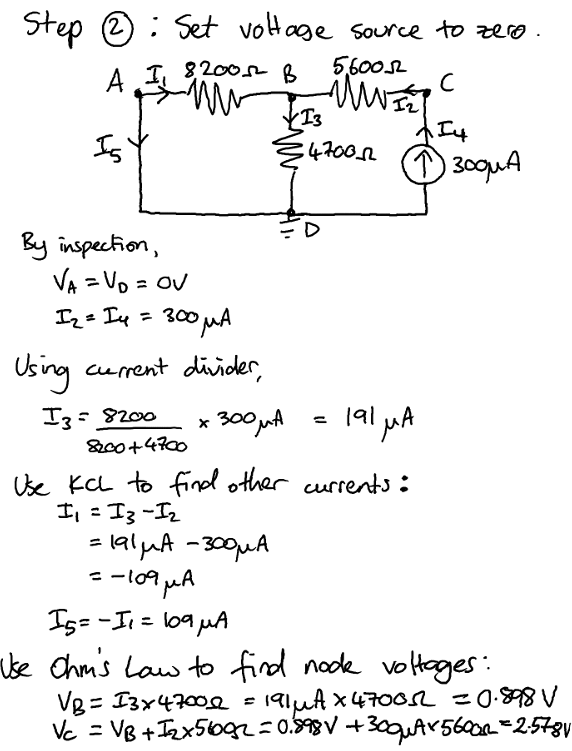 Step ② : Set voltage source to zero.
A I₁ 8200Ω B 5600Ω C
I₂
I₃
I₄
I₅ 4700Ω 300μA
D
By inspection,
V_A = V_D = 0V
I₂ = I₄ = 300μA
Using current divider,
I₃ = 8200 / 8200+4700 × 300μA = 191μA
Use KCL to find other currents:
I₁ = I₃ - I₂
= 191μA - 300μA
= -109μA
I₅ = -I₁ = 109μA
Use Ohm's Law to find node voltages:
V_B = I₃×4700Ω = 191μA × 4700Ω = 0.898V
V_C = V_B + I₂×5600Ω = 0.898V + 300μA×5600Ω = 2.578V